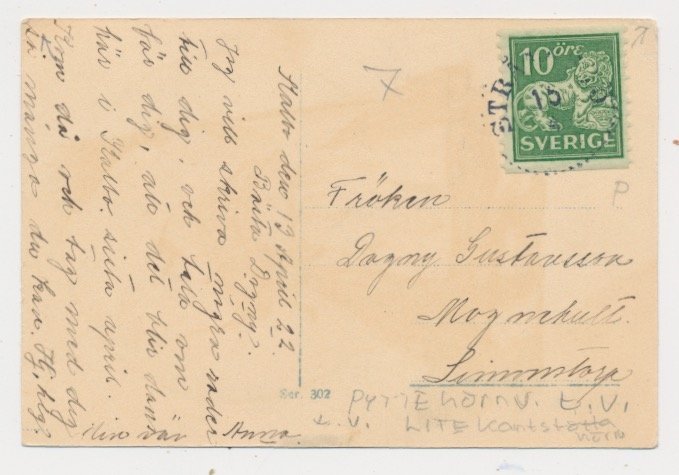 Stalbo den 13 April 22.
Bästa Dagny.
Jag vill skriva några rader
till dig, och tala om
för dig, att det blir dans
här i Stalbo sista april.
Kom då och tag med dig
så många du kan. Hj, helg?
din vän Anna.
10 ÖRE
SVERIGE
STR
15
7
P
Fröken
Dagny Gustavsson
Mognhult.
Simonstorp
Ser. 302
t.v.
t.v. LITE kantst
hörn